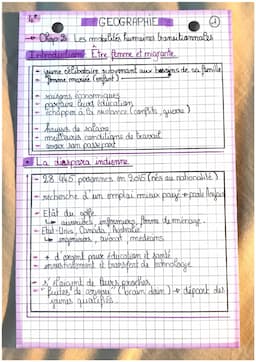 GEOGRAPHIE
1
Chap 2: Les mobilités humaines transnationales
Introduction: Être femme et migrante
- jeune célibataire subvenant aux besoins de sa famille
- femme mariée (enfant)
- raisons économiques
- parfaire leurs éducation
- échapper à la violence (conflits, guerre)
- hausse de salaire
- meilleures conditions de travail
- avoir son passeport
• La diaspora indienne
- 28 445 personnes en 2015 (nés ou nationalité)
- recherche d'un emploi mieux payé + parle Anglais
- Etat du golfe
↳ ouvriers, infirmières, femme de ménage.
- Etat-Unis, Canada, Australie
↳ ingénieurs, avocat, médecins
- + d'argent pour éducation et santé
- investissement et transfert de technologie
- s'éloignent de leurs proches
- "fuites" de cerveau" (brain drain) → départ des
jeunes qualifiés